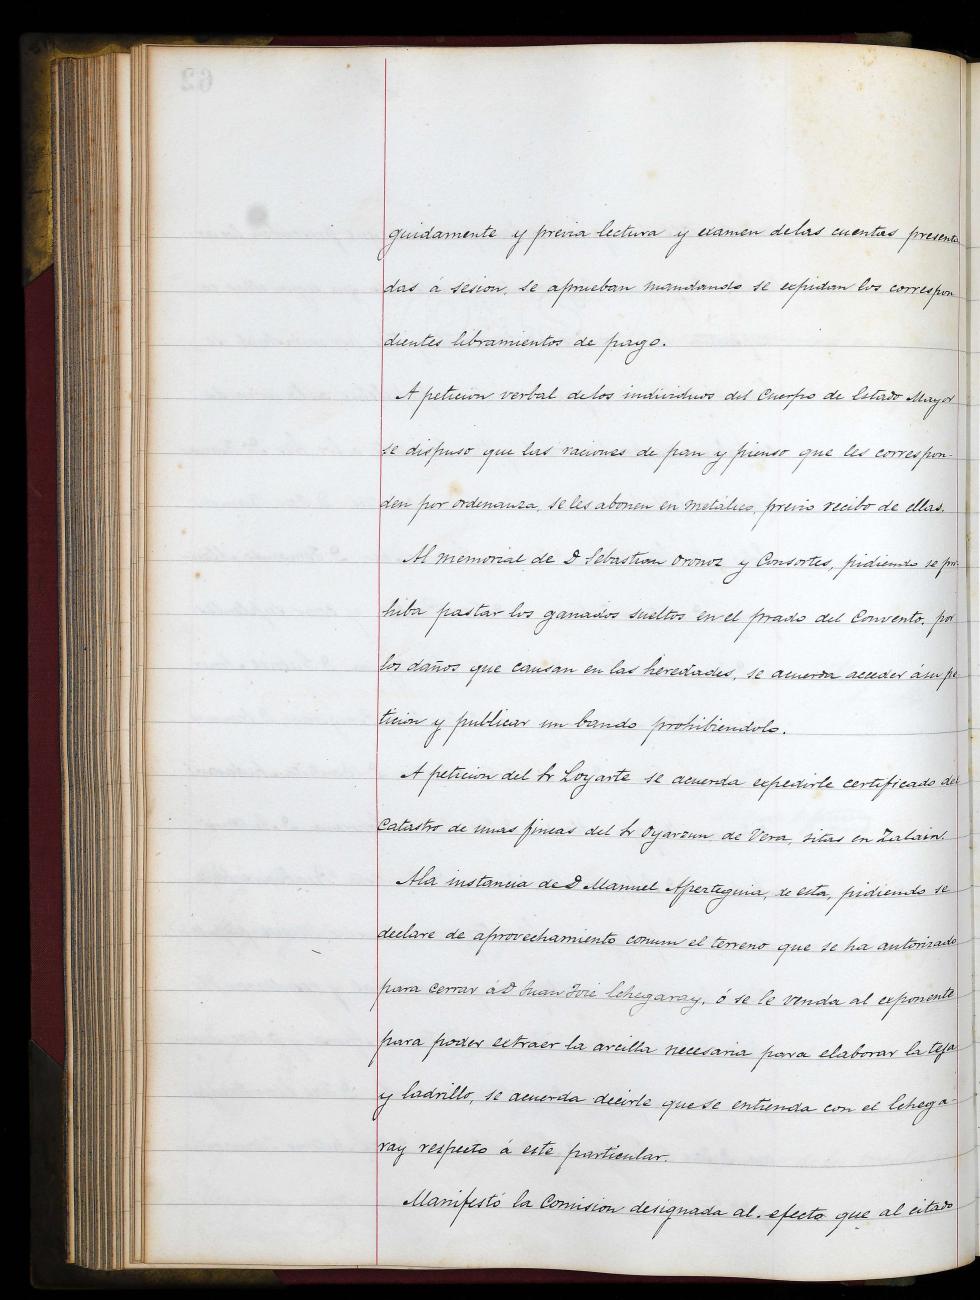 guidamente y previa lectura y examen delas cuentas presenta
das á sesion, se aprueban mandando se expidan los correspon
dientes libramientos de pago.
A peticion verbal delos individuos del Cuerpo de Estado Mayor
se dispuso que las raciones de pan y pienso que les correspon-
den por ordenanza, se les abonen en metálico, previo recibo de ellas.
Al memorial de D Sebastian Oronoz y Consortes, pidiendo se pro
hiba pastar los ganados sueltos en el prado del Convento, por
los daños que causan en las heredades, se acuerda acceder ásu pe
ticion y publicar un bando prohibiendolo.
A peticion del Sr Loyarte se acuerda expedirle certificado del
Catastro de unas fincas del Sr Oyarzun de Vera, sitas en Zalain.
Ala instancia de D Manuel Apezteguia, de esta, pidiendo se
declare de aprovechamiento comun el terreno que se ha autorizado
para cerrar á D Juan José Echegaray, ó se le venda al exponente
para poder extraer la arcilla necesaria para elaborar la teja
y ladrillo, se acuerda decirle que se entienda con el Echega-
ray respecto á este particular.
Manifestó la Comision designada al efecto que al citado